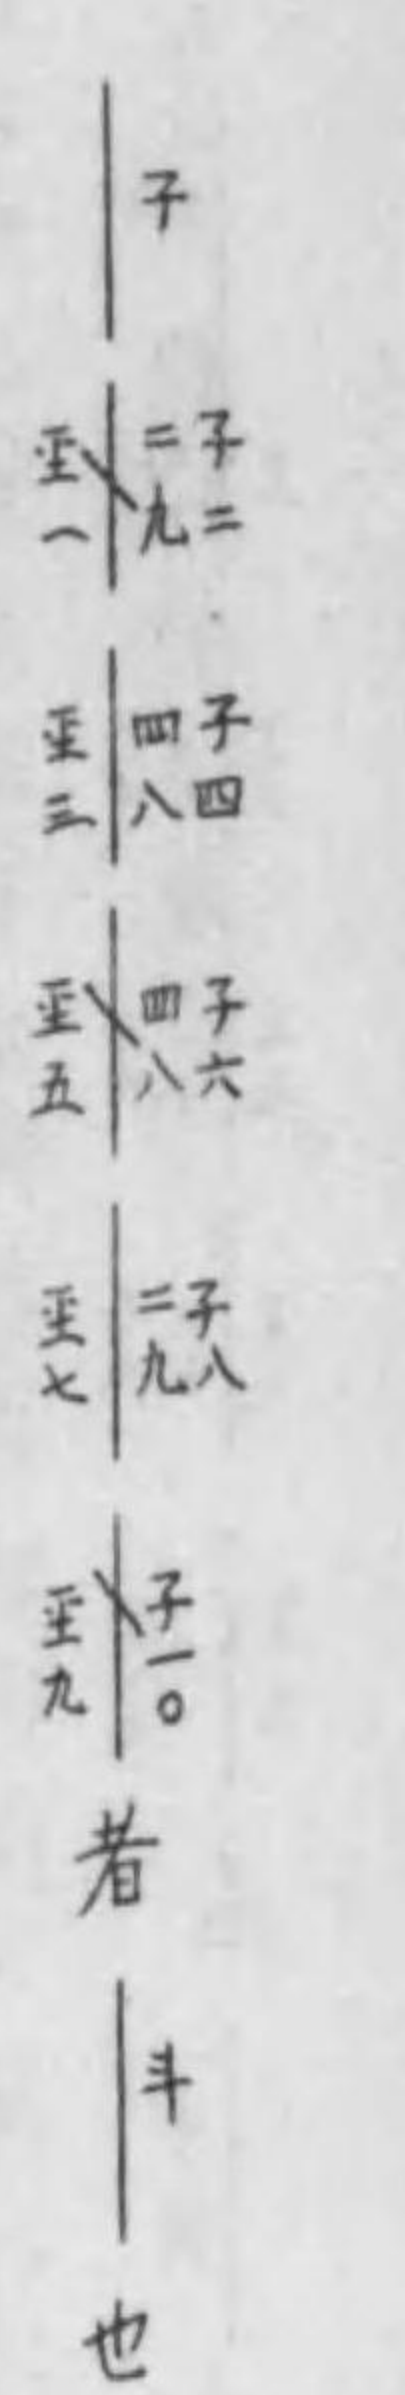 子
子二
二九
坙一
子四
四八
坙三
子六
四八
坙五
子八
二九
坙七
子一〇
坙九
者
斗
也